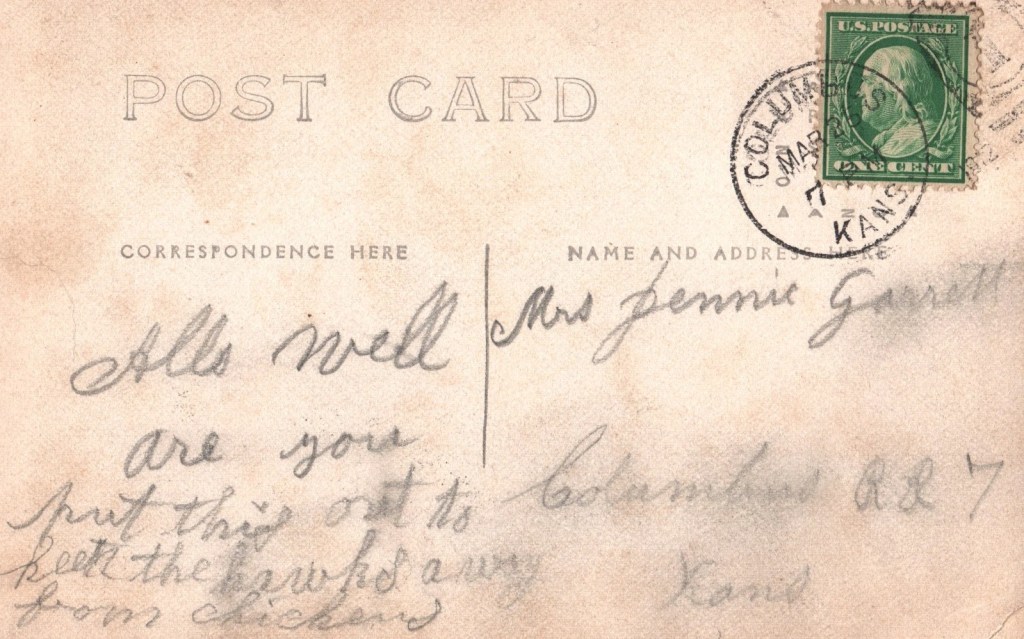 POST CARD
U.S. POSTAGE
ONE CENT
COLUMBUS
MAR 25
7
KANS
CORRESPONDENCE HERE
NAME AND ADDRESS HERE
Alls well
are you
put this out to
keek the hawks away
from chickens
Mrs Jennie Garrett
Columbus RR 7
Kans